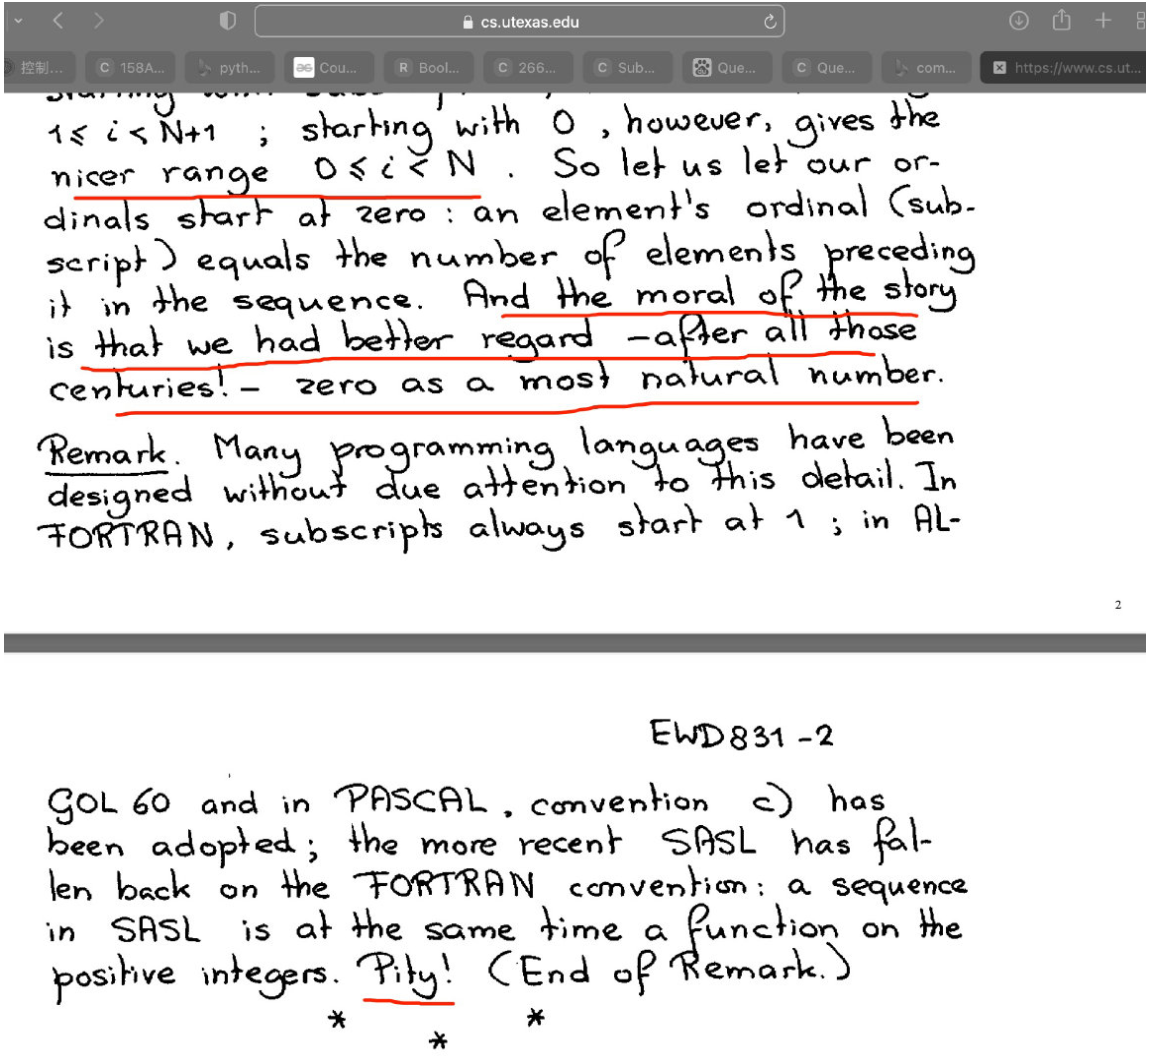 cs.utexas.edu
控制...
C 158A...
pyth...
ae Cou...
R Bool...
C 266...
C Sub...
Que...
C Que...
com...
https://www.cs.ut...
1 ≤ i < N+1 ; starting with 0 , however, gives the
nicer range 0 ≤ i < N . So let us let our or-
dinals start at zero : an element's ordinal (sub-
script) equals the number of elements preceding
it in the sequence. And the moral of the story
is that we had better regard -after all those
centuries!- zero as a most natural number.
Remark. Many programming languages have been
designed without due attention to this detail. In
FORTRAN, subscripts always start at 1 ; in AL-
2
EWD831-2
GOL 60 and in PASCAL, convention c) has
been adopted; the more recent SASL has fal-
len back on the FORTRAN convention: a sequence
in SASL is at the same time a function on the
positive integers. Pity! (End of Remark.)